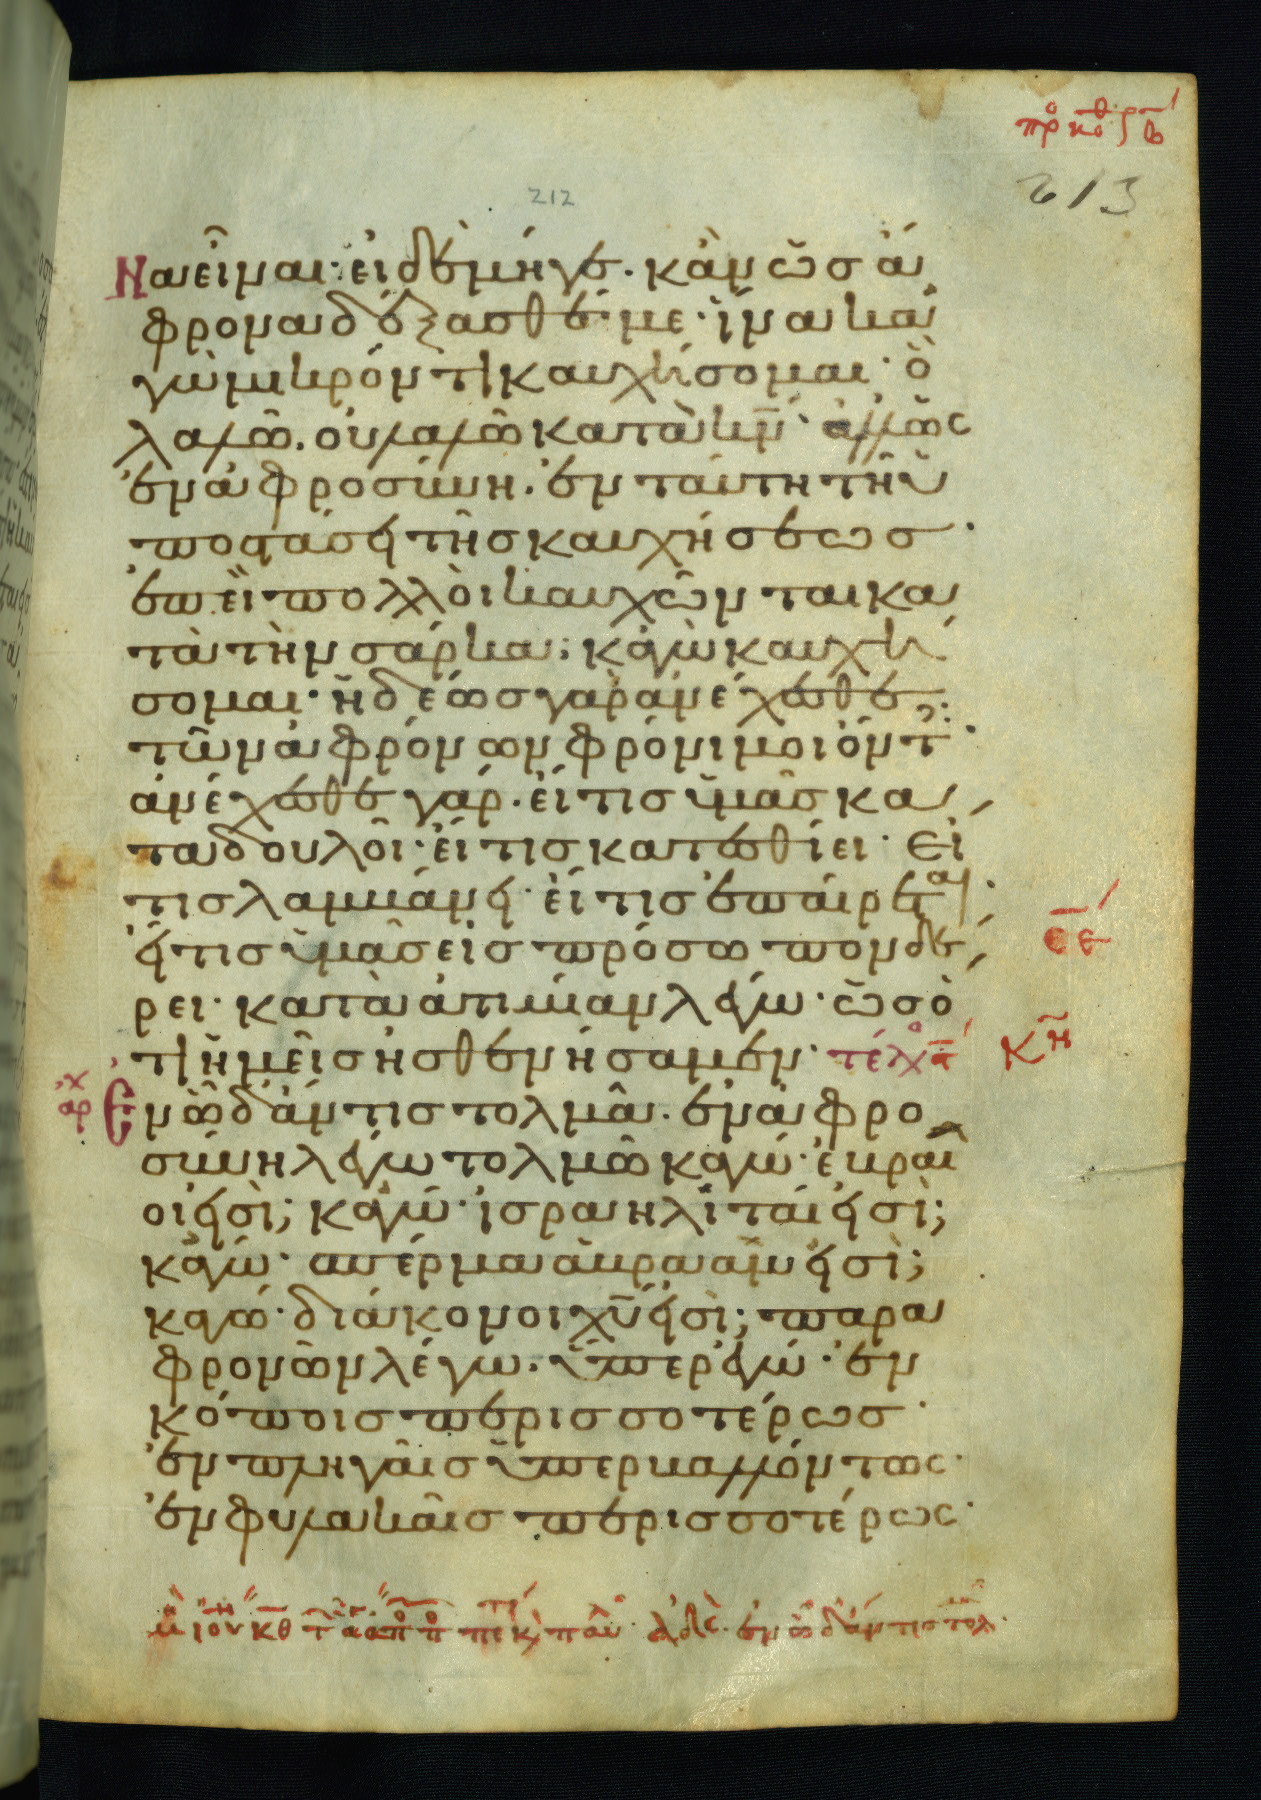 212
213
ναεῖναι· εἰ δὲ μή γε· κἂν ὡς ἄ
φρονα δέξασθέ με· ἵνα κα
γὼ μικρόν τι καυχήσομαι· ὃ
λαλῶ. οὐ λαλῶ κατὰ κν̄· ἀλλ' ὡς
ἐν ἀφροσύνη· ἐν ταύτη τῆ ὑ
ποστάσει τῆς καυχήσεως·
ἐπεὶ πολλοὶ καυχῶνται κα
τὰ τὴν σάρκα; κἀγὼ καυχή
σομαι· ἡδέως γὰρ ἀνέχεσθε,
τῶν ἀφρόνων φρόνιμοι ὄντ·
ἀνέχεσθε γάρ· εἴ τις ὑμᾶς κα
ταδουλοῖ· εἴ τις κατεσθίει· εἴ
τις λαμβάνει· εἴ τις ἐπαίρεται·
εἴ τις ὑμᾶς εἰς πρόσωπον δέ
ρει· κατὰ ἀτιμίαν λέγω· ὡς ὅ
τι ἡμεῖς ἠσθενήσαμεν· τέλ
αρχ
Ἐν ὧ δ' ἄν τις τολμᾶ· ἐν ἀφρο
σύνη λέγω τολμῶ κἀγώ· ἑβραῖ
οί εἰσι; κἀγώ· ἰσραηλῖταί εἰσι;
κἀγώ· σπέρμα ἀβραάμ εἰσι;
κἀγώ· διάκονοι χῡ εἰσι; παρα
φρονῶν λέγω· ὑπὲρ ἐγώ· ἐν
κόποις περισσοτέρως·
ἐν πληγαῖς ὑπερβαλλόντως·
ἐν φυλακαῖς περισσοτέρως·
ε̄ε̄
κη
μ ἰουν κθ τ ἁγ απο πε κ παυ· ἀδε. ἐν ὧ δ' ἄν τις τολμ